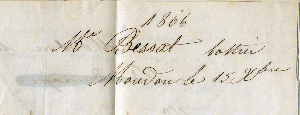 1806
Mr Bessat bottier
Moudon le 15 Xbre